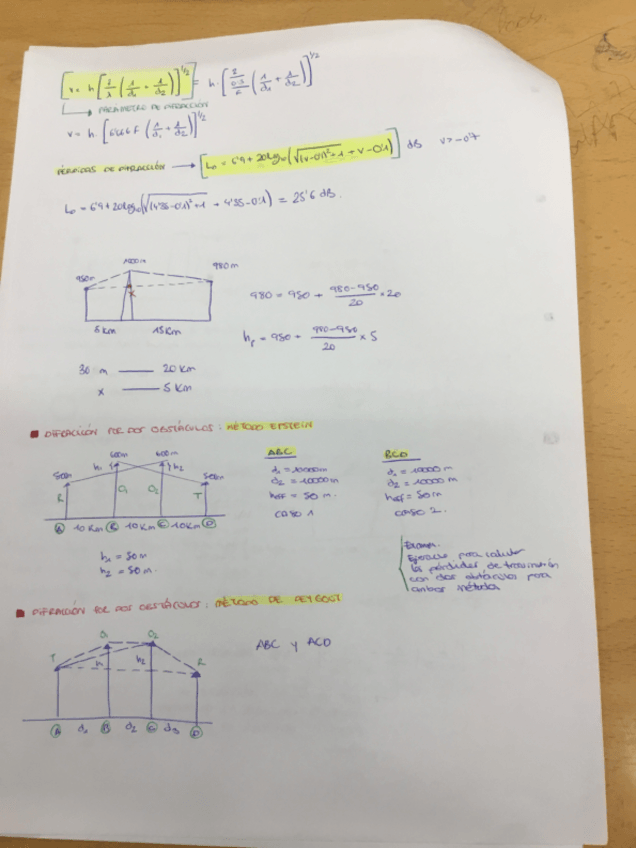 v = h [2/λ (1/d1 + 1/d2)]^1/2 = h · [2/(0'3/f) (1/d1 + 1/d2)]^1/2
PARÁMETRO DE DIFRACCIÓN
v = h · [6'666 f (1/d1 + 1/d2)]^1/2
PÉRDIDAS DE DIFRACCIÓN → LD = 6'9 + 20 log10 (√((v-0'1)²+1 + v - 0'1) dB v > -0'7
LD = 6'9 + 20 log10 (√((4'35-0'1)²+1 + 4'35-0'1) = 25'6 dB.
1000m
950m
980m
x
5 Km 15 Km
980 = 950 + (980-950)/20 × 20
hr = 950 + (980-950)/20 × 5
30 m — 20 Km
x — 5 Km
DIFRACCIÓN POR DOS OBSTÁCULOS: MÉTODO EPSTEIN
600m 600m
500m h1 h2 500m
R O1 O2 T
A 10 Km B 10 Km C 10 Km D
h1 = 50 m
h2 = 50 m.
ABC
d1 = 10000m
d2 = 10000m
heff = 50 m.
CASO 1
BCD
d1 = 10000 m
d2 = 10000 m
heff = 50 m
CASO 2.
Examen.
Ejercicio para calcular
las pérdidas de transmisión
con dos obstáculos para
ambos métodos
DIFRACCIÓN POR DOS OBSTÁCULOS: MÉTODO DE DEYGOUT
O1 O2
T h1 h2 R
A d1 B d2 C d3 D
ABC y ACD